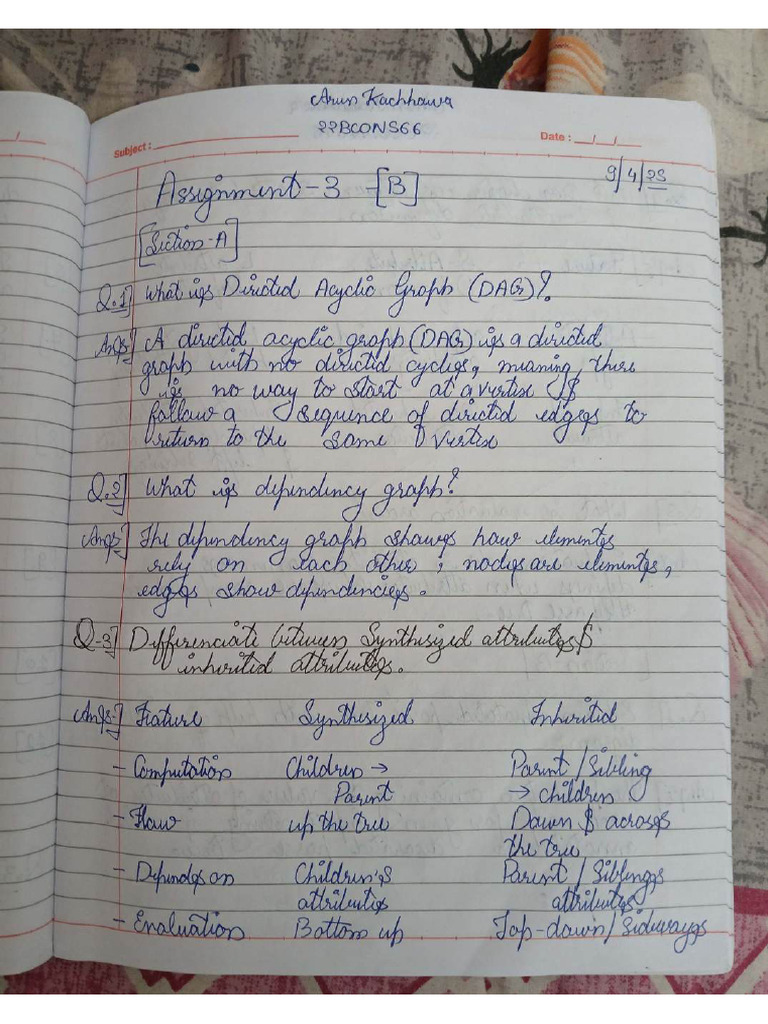 Arun Kachhawa
22BCON566
Subject :
Date : __/__/__
9/4/25
Assignment - 3 - [B]
[Section - A]
Q.1] What is Directed Acyclic Graph (DAG)?
Ans-] A directed acyclic graph (DAG) is a directed
graph with no directed cycles, meaning there
is no way to start at a vertex &
follow a sequence of directed edges to
return to the same vertex
Q.2] What is dependency graph?
Ans-] The dependency graph shows how elements
rely on each other ; nodes are elements,
edges show dependencies.
Q-3] Differenciate between Synthesized attributes &
inherited attributes.
Ans-] Feature Synthesized Inherited
- Computation Children → Parent / Sibling
Parent → children
- Flow up the tree Down & across
the tree
- Depends on Children's Parent / Siblings
attributes attributes
- Evaluation Bottom up Top-down / Sideways